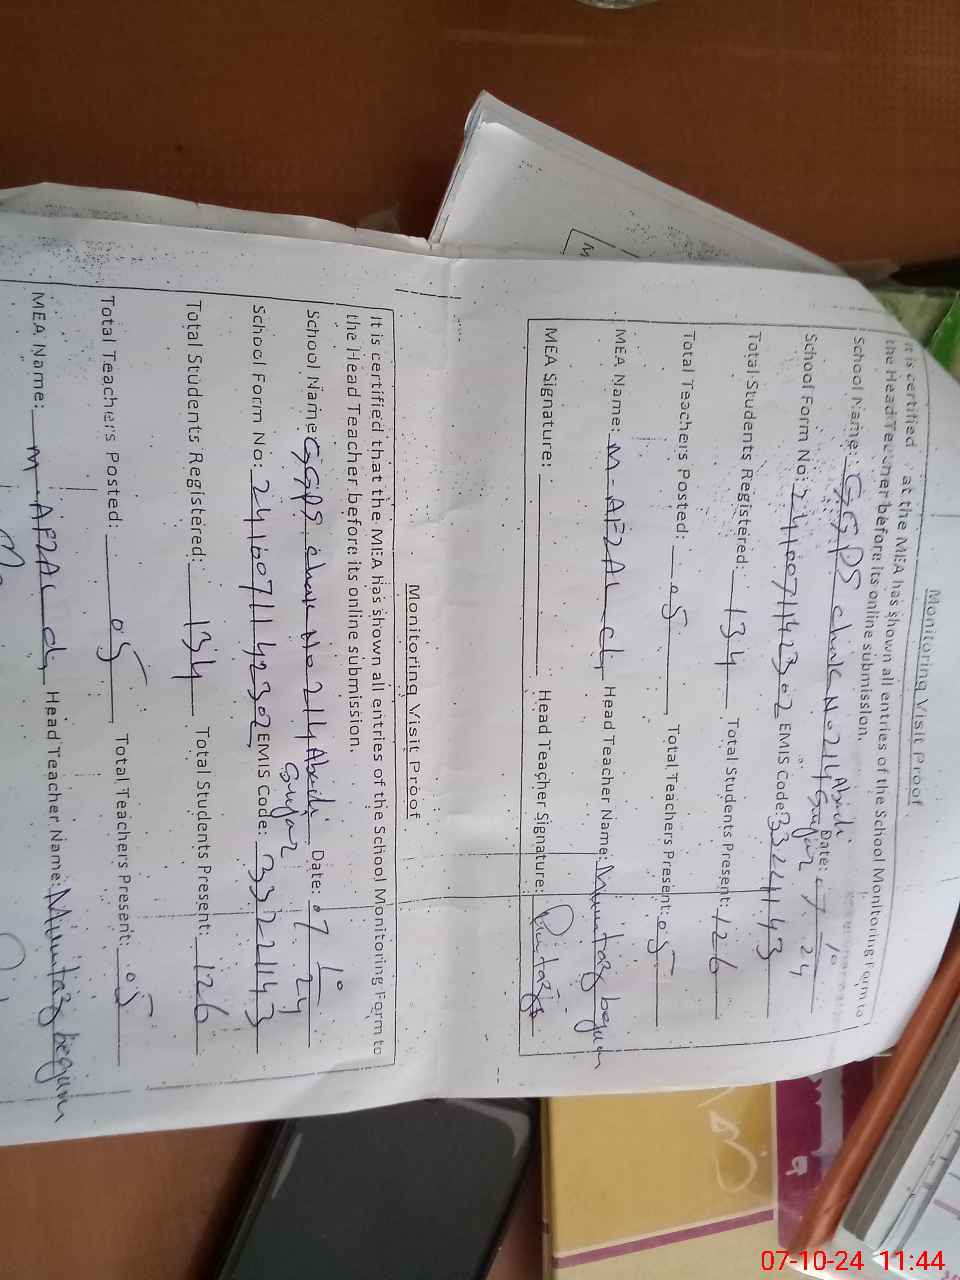 Monitoring Visit Proof
It is certified that the MEA has shown all entries of the School Monitoring Form to
the Head Teacher before its online submission.
School Name: GGPS chak No 214 Abadi Date: 07.10.24
Sujar
School Form No: 24100711423302 EMIS Code:
Total Students Registered: 134 Total Students Present: 126
Total Teachers Posted: 05 Total Teachers Present: 05
MEA Name: M-AFZAL Head Teacher Name: Mumtaz begum
MEA Signature: Head Teacher Signature: Mumtaz
Monitoring Visit Proof
It is certified that the MEA has shown all entries of the School Monitoring Form to
the Head Teacher before its online submission.
School Name: GGPS chak No 214 Abadi Date: 07.10.24
Sujar
School Form No: EMIS Code:
Total Students Registered: 134 Total Students Present: 126
Total Teachers Posted: 05 Total Teachers Present: 05
MEA Name: M-AFZAL Head Teacher Name: Mumtaz begum
07-10-24 11:44